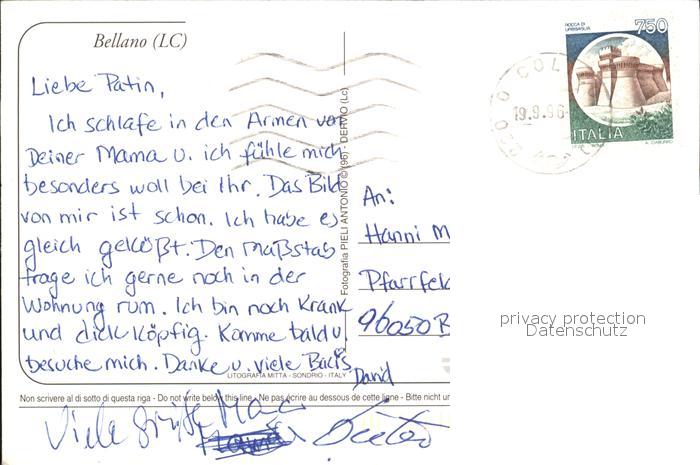 Bellano (LC)
ROCCA DI
URBISAGLIA
750
19.9.96
ITALIA
Liebe Patin,
Ich schlafe in den Armen von
Deiner Mama u. ich fühle mich
besonders woll bei Ihr. Das Bild
von mir ist schon. Ich habe es
gleich geküßt. Den Maßstab
trage ich gerne noch in der
Wohnung rum. Ich bin noch Krank
und dickköpfig. Komme bald u.
besuche mich. Danke u. viele Bacis
David
An:
Hanni M
Pfarrfel
96050 B
Fotografia PIELI ANTONIO © (96) - DERVIO (Lc)
LITOGRAFIA MITTA - SONDRIO - ITALY
privacy protection
Datenschutz
Non scrivere al di sotto di questa riga - Do not write below this line - Ne pas écrire au dessous de cette ligne - Bitte nicht un
Viele Grüße Mama
Dieter